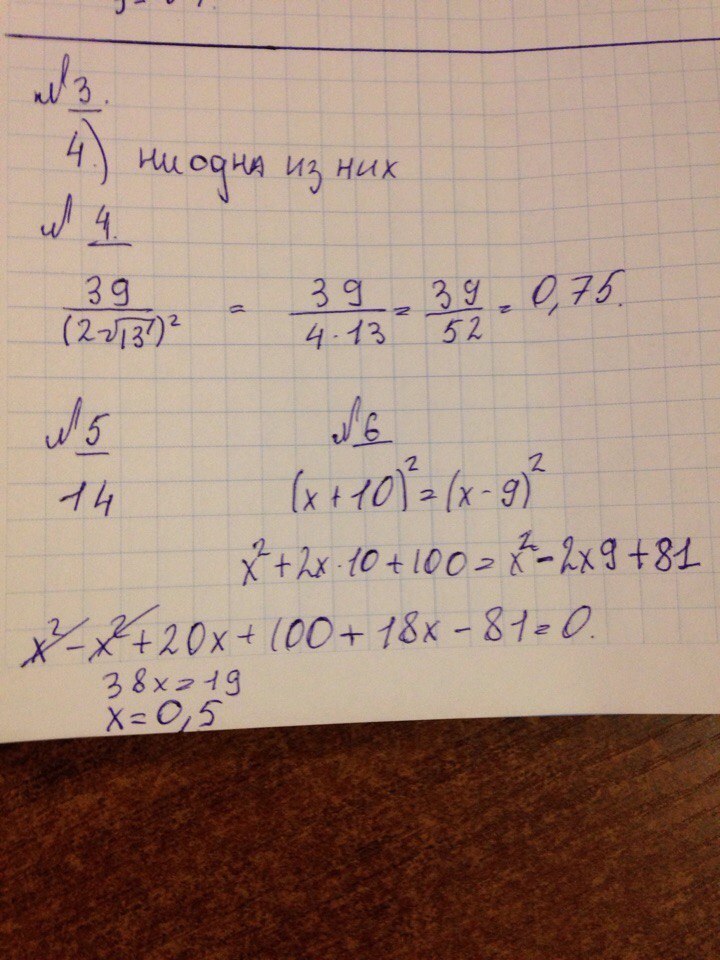 №3.
4.) ни одна из них
№ 4.
39/(2√13)² = 39/4·13 = 39/52 = 0,75.
№5
14
№6
(x+10)²=(x-9)²
x²+2x·10+100=x²-2x9+81
x²-x²+20x+100+18x-81=0.
38x=19
x=0,5